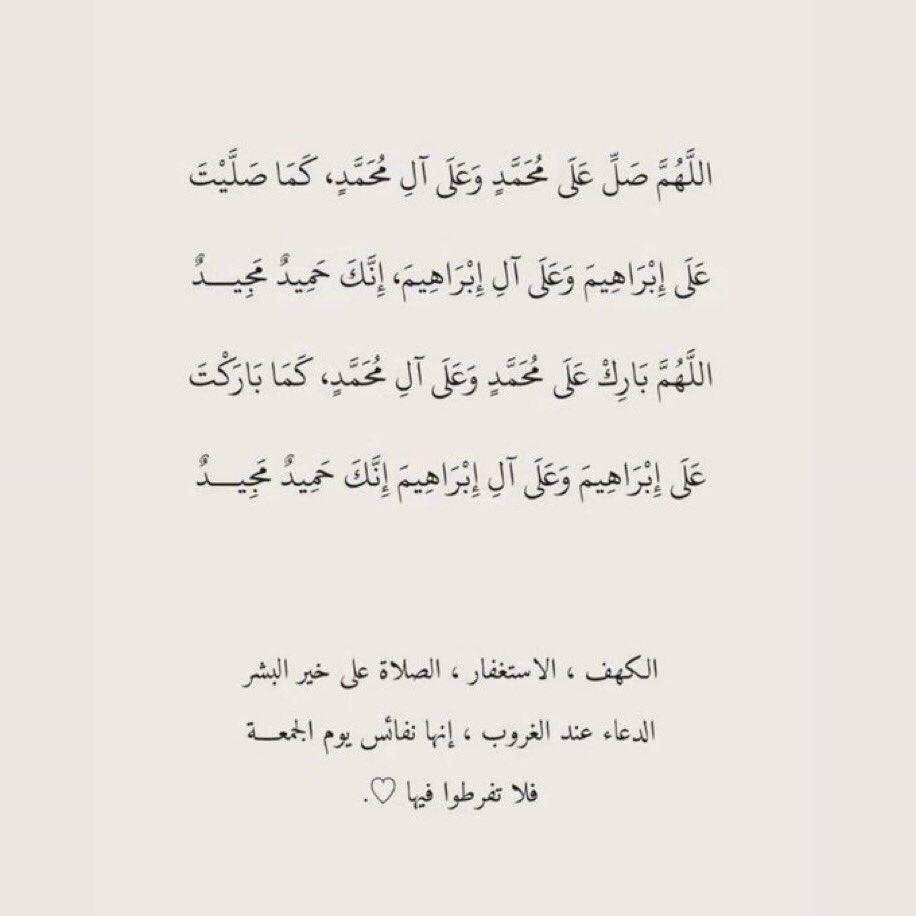 اللَّهُمَّ صَلِّ عَلَى مُحَمَّدٍ وَعَلَى آلِ مُحَمَّدٍ، كَمَا صَلَّيْتَ
عَلَى إِبْرَاهِيمَ وَعَلَى آلِ إِبْرَاهِيمَ، إِنَّكَ حَمِيدٌ مَجِيـــدٌ
اللَّهُمَّ بَارِكْ عَلَى مُحَمَّدٍ وَعَلَى آلِ مُحَمَّدٍ، كَمَا بَارَكْتَ
عَلَى إِبْرَاهِيمَ وَعَلَى آلِ إِبْرَاهِيمَ إِنَّكَ حَمِيدٌ مَجِيـــدٌ
الكهف ، الاستغفار ، الصلاة على خير البشر
الدعاء عند الغروب ، إنها نفائس يوم الجمعـــة
فلا تفرطوا فيها ♡.